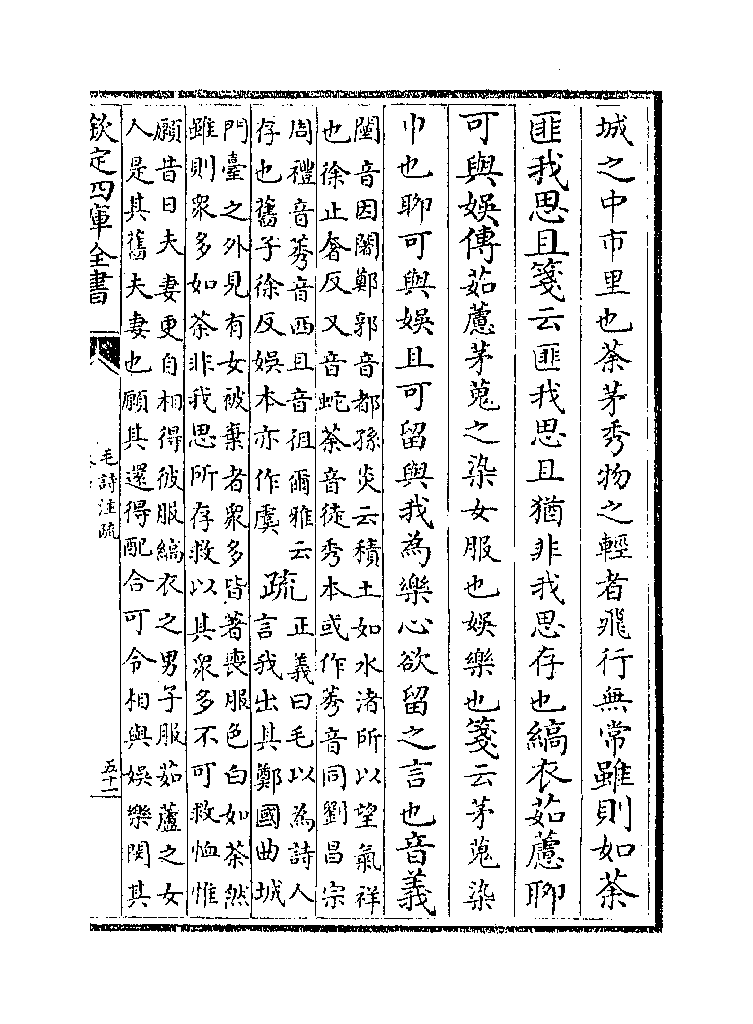 城之中市里也荼茅秀物之輕者飛行無常雖則如荼
匪我思且箋云匪我思且猶非我思存也縞衣茹藘聊
可與娛傳茹藘茅蒐之染女服也娛樂也箋云茅蒐染
巾也聊可與娛且可留與我為樂心欲留之言也音義
闉音因闍鄭郭音都孫炎云積土如水渚所以望氣祥
也徐止奢反又音蛇荼音徒秀本或作莠音同劉昌宗
周禮音莠音酉且音徂爾雅云
存也舊子徐反娛本亦作虞
疏
正義曰毛以為詩人
言我出其鄭國曲城
門臺之外見有女被棄者衆多皆著喪服色白如荼然
雖則衆多如荼非我思所存救以其衆多不可救恤惟
願昔日夫妻更自相得彼服縞衣之男子服茹藘之女
人是其舊夫妻也願其還得配合可令相與娛樂閔其
欽定四庫全書
毛詩注疏
五十二